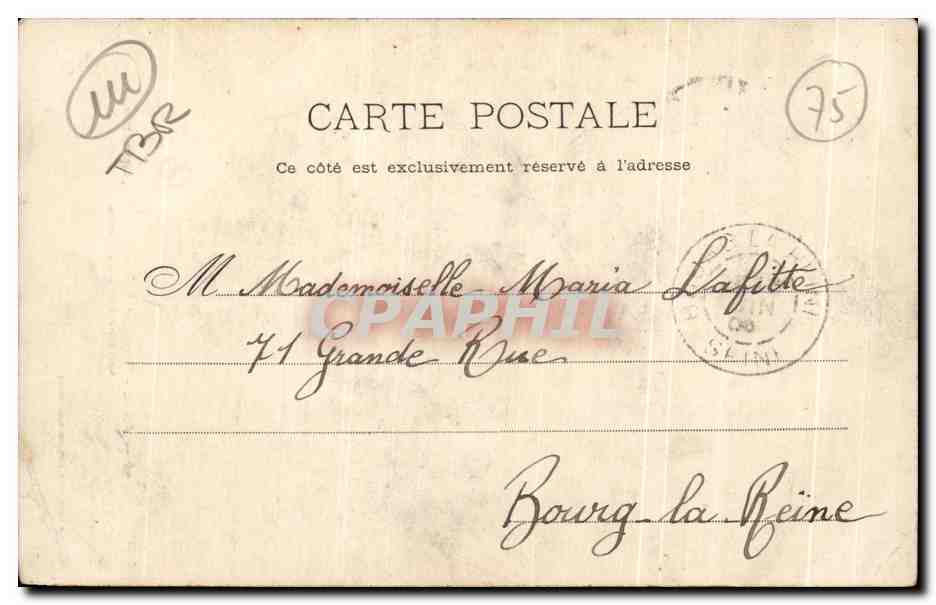 TBR
75
CARTE POSTALE
Ce côté est exclusivement réservé à l'adresse
M Mademoiselle Maria Lafitte
71 Grande Rue
Bourg-la Reine
CPAPHIL
SEINE